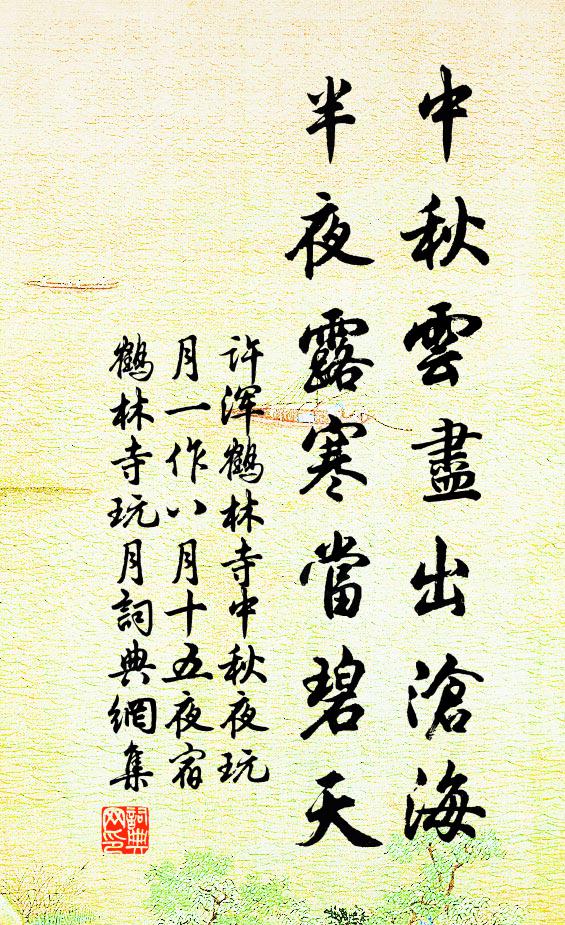 中秋雲盡出滄海
半夜露寒當碧天
许浑鹤林寺中秋夜玩
月一作八月十五夜宿
鹤林寺玩月詞典網集
詞典
网印